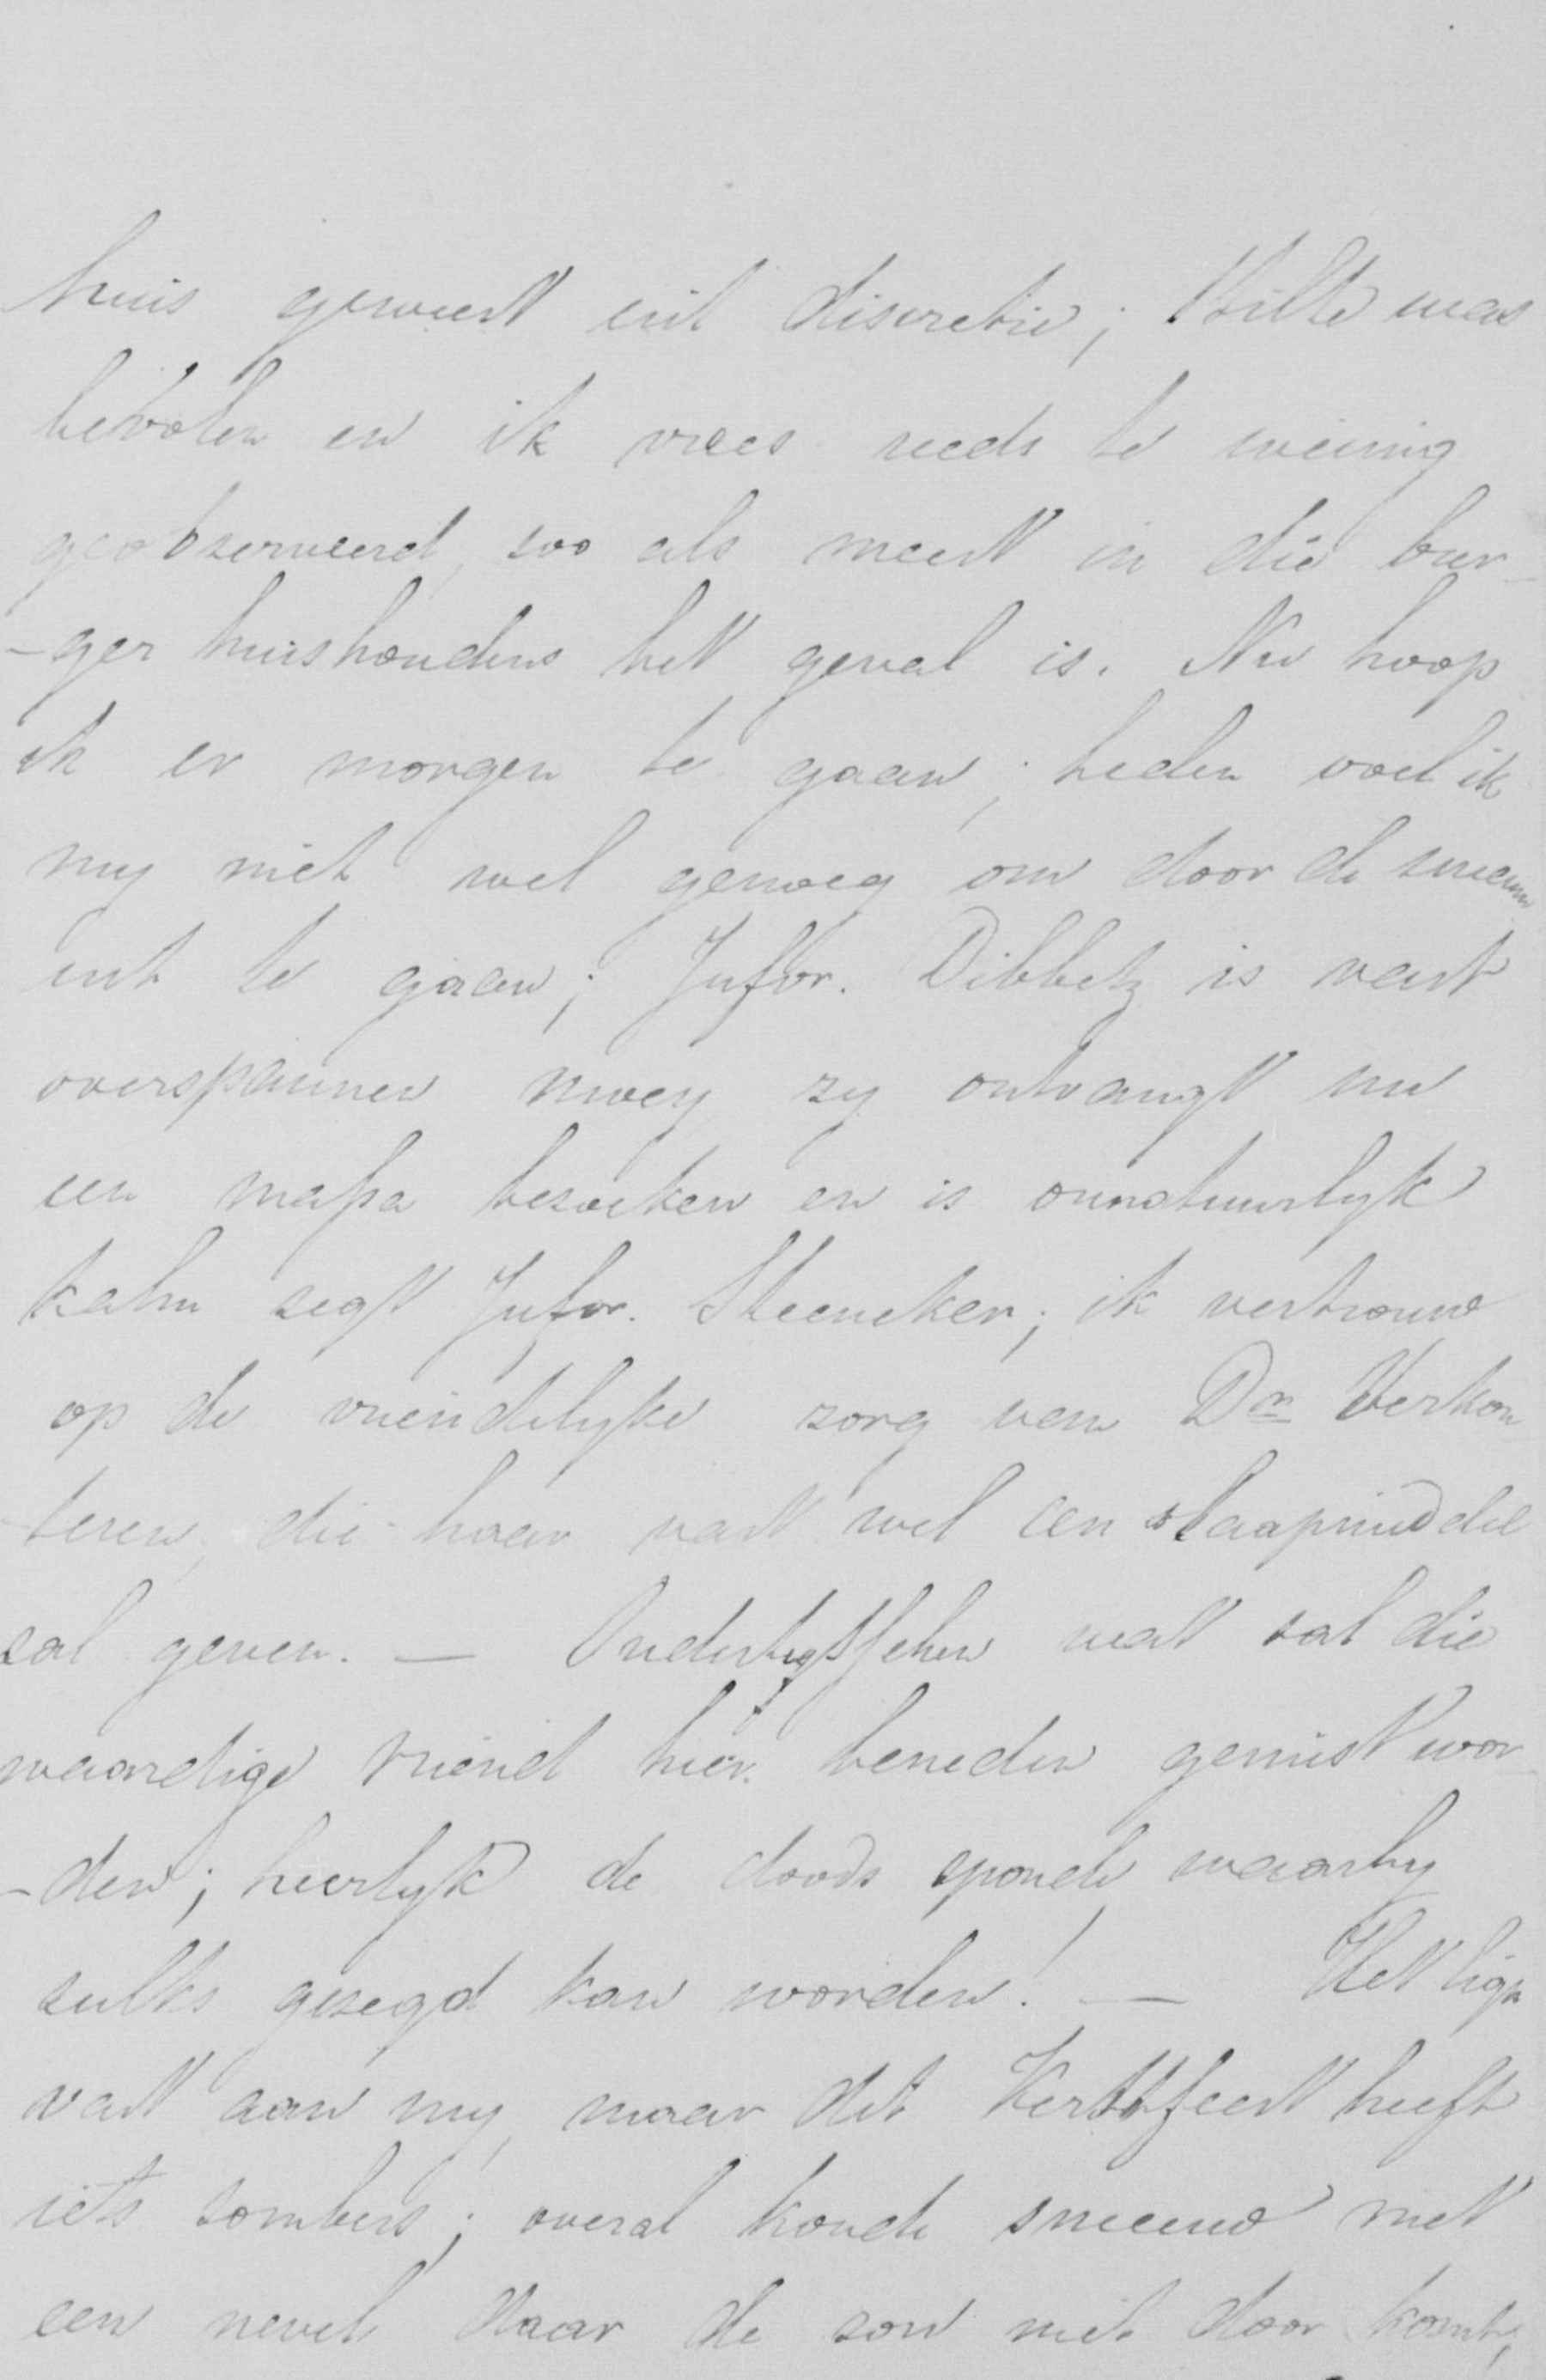 huis geweest uit discretie; stilte was
bevolen en ik vrees reeds te weinig
geobserveerd, zoo als meest in die bur-
-ger huishoudens het geval is. Nu hoop
ik er morgen te gaan; heden voel ik
my niet wel genoeg om door de sneeuw
uit te gaan; Jufvr. Dibbetz is vast
overspannen moey, zy ontvangt nu
een massa bezoeken en is onnatuurlyk
kalm zegt Jufvr. Steeneken; ik vertrouw
op de vriendelyke zorg van Dr. Verkou
teren, die haar vast wel een slaapmiddel
zal geven. — Ondertusschen wat zal die
waardige vriend hier beneden gemist wor-
-den; heerlyk de doods sponde waarby
zulks gezegd kan worden! — Het ligt
vast aan my, maar dit Kerstfeest heeft
iets sombers; overal koude sneeuw met
een nevel daar de zon niet door komt;